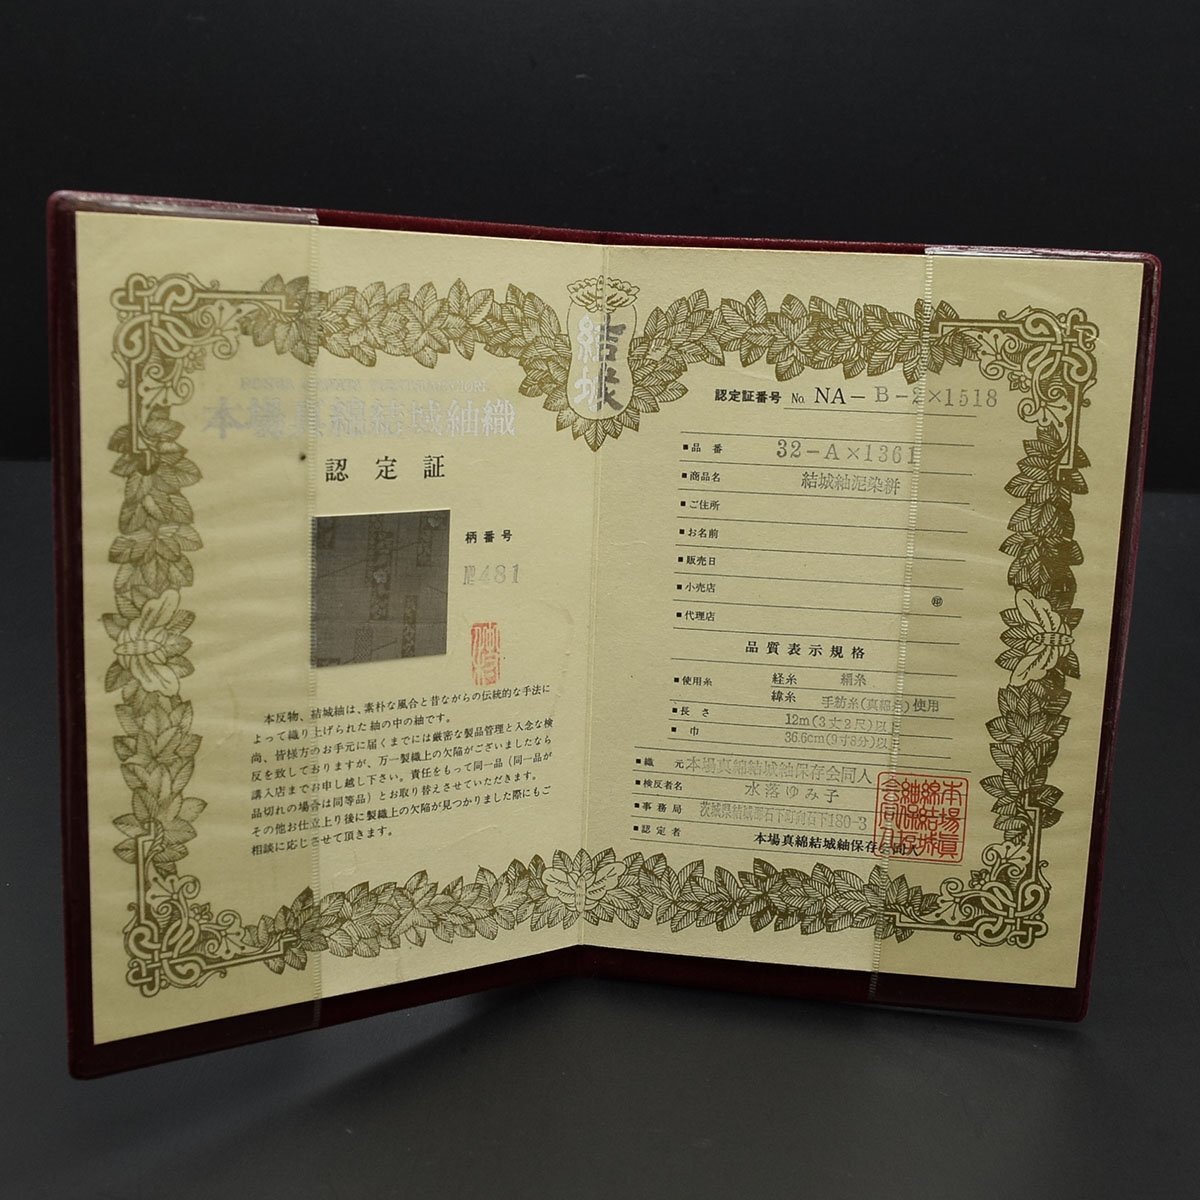 結城
本場真綿結城紬織
認定証
柄番号
№481
本反物、結城紬は、素朴な風合と昔ながらの伝統的な手法に
よって織り上げられた紬の中の紬です。
尚、皆様方のお手元に届くまでには厳密な製品管理と入念な検
反を致しておりますが、万一製織上の欠陥がございましたなら
購入店までお申し越し下さい。責任をもって同一品（同一品が
品切れの場合は同等品）とお取り替えさせていただきます。
その他お仕立上り後に製織上の欠点が見つかりました際にもご
相談に応じさせて頂きます。
認定証番号 No. NA－B－2×1518
■品番 32－A×1361
■商品名 結城紬泥染絣
■ご住所
■お名前
■販売日
■小売店 ㊞
■代理店
品質表示規格
■使用糸 経糸 絹糸
緯糸 手紡糸(真綿糸)使用
■長さ 12m(3丈2尺)以上
■巾 36.6cm(9寸8分)以上
■織元 本場真綿結城紬保存会同人
■検反者名 水落ゆみ子
■事務局 茨城県結城郡石下町向石下180－3
■認定者 本場真綿結城紬保存会同人
本場眞
綿結城
紬保存
会同人